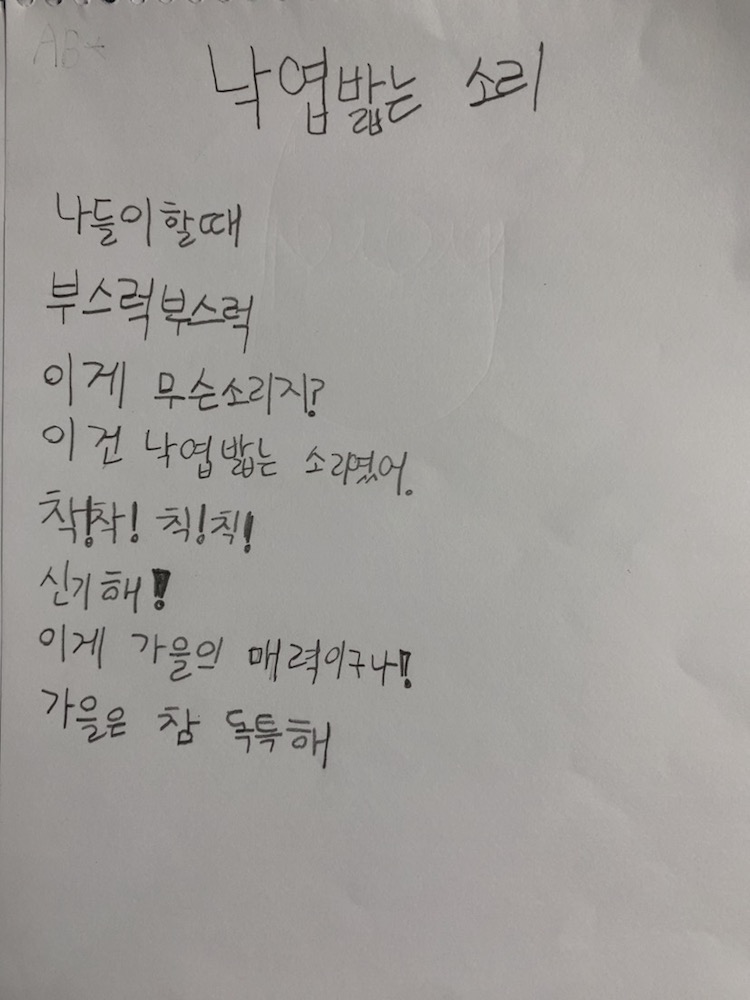 AB+
낙엽밟는 소리
나들이할때
부스럭부스럭
이게 무슨소리지?
이건 낙엽밟는 소리였어.
착!착! 칙!칙!
신기해!
이게 가을의 매력이구나!
가을은 참 독특해